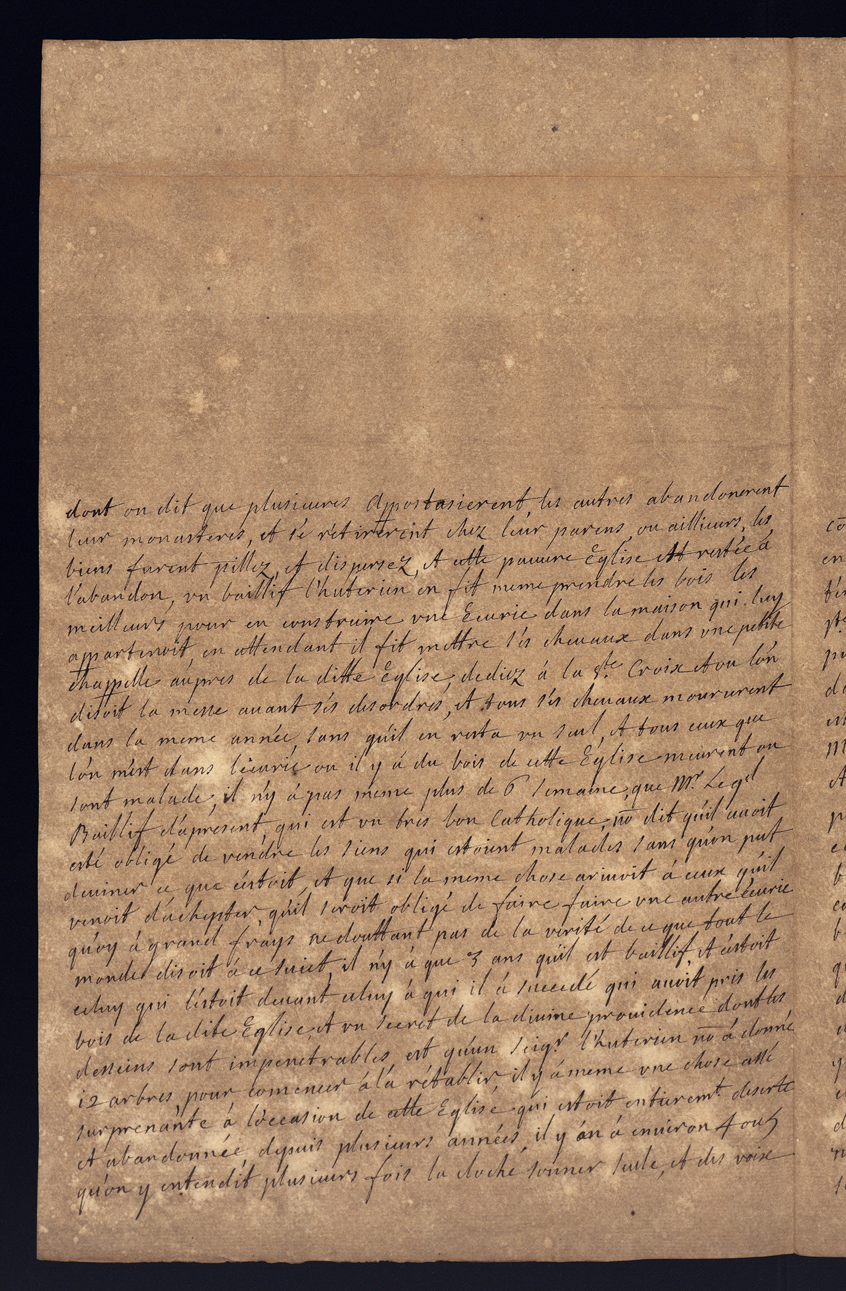 dont on dit que plusieures appostasierent, les autres abandonerent
leur monasteres, et sé rétirerent chez leur parens, ou ailleurs, les
biens furent pillez, et dispersez, et cette pauure Eglise est restée à
l'abandon, vn baillif l'huterien en fit meme prendre les bois les
meilleurs pour en construire vne Ecurie dans la maison qui luy
appartenoit en attendant il fit mettre sés cheuaux dans vne petite
chappelle aupres de la ditte Eglise, dediez à la Ste. Croix et ou l'on
disoit la messe auant sés desordres, et tous sés cheuaux moururent
dans la meme année, sans qu'il en resta vn seul, et tous ceux que
l'on mest dans l'écurie ou il y à du bois de cette Eglise meurent ou
sont malade, il n'y à pas meme plus de 6 semaine, que Mr. Le gd
Baillif d'apresent, qui est vn tres bon Catholique, nō dit qu'il auoit
esté obligé de vendre les siens qui estoient malades sans qu'on put
deuiner ce que c'éstoit, et que si la meme chose arriuoit à ceux qu'il
venoit d'achepter, qu'il seroit obligé de faire faire vne autre écurie
qu'oy à grand frays ne douttant pas de la vérité de ce que tout le
monde disoit à ce suiet, il n'y à que 3 ans qu'il est baillif, et c'éstoit
celuy qui l'éstoit deuant celuy à qui il à succedé qui auoit pris les
bois de la dite Eglise et vn secrét de la diuine prouidence dont les
desseins sont impenétrables, est qu'un seigr. l'huterien nō à donné
12 arbres pour comencer à la rétablir, il y à meme vne chose assé
surprenante à l'occasion de cette Eglise qui estoit entieremt. deserte
et abandonnée, depuis plusieurs années, il y an à enuiron 4 ou 5
qu'on y entendit plusieurs fois la cloche sonner seule, et des voix